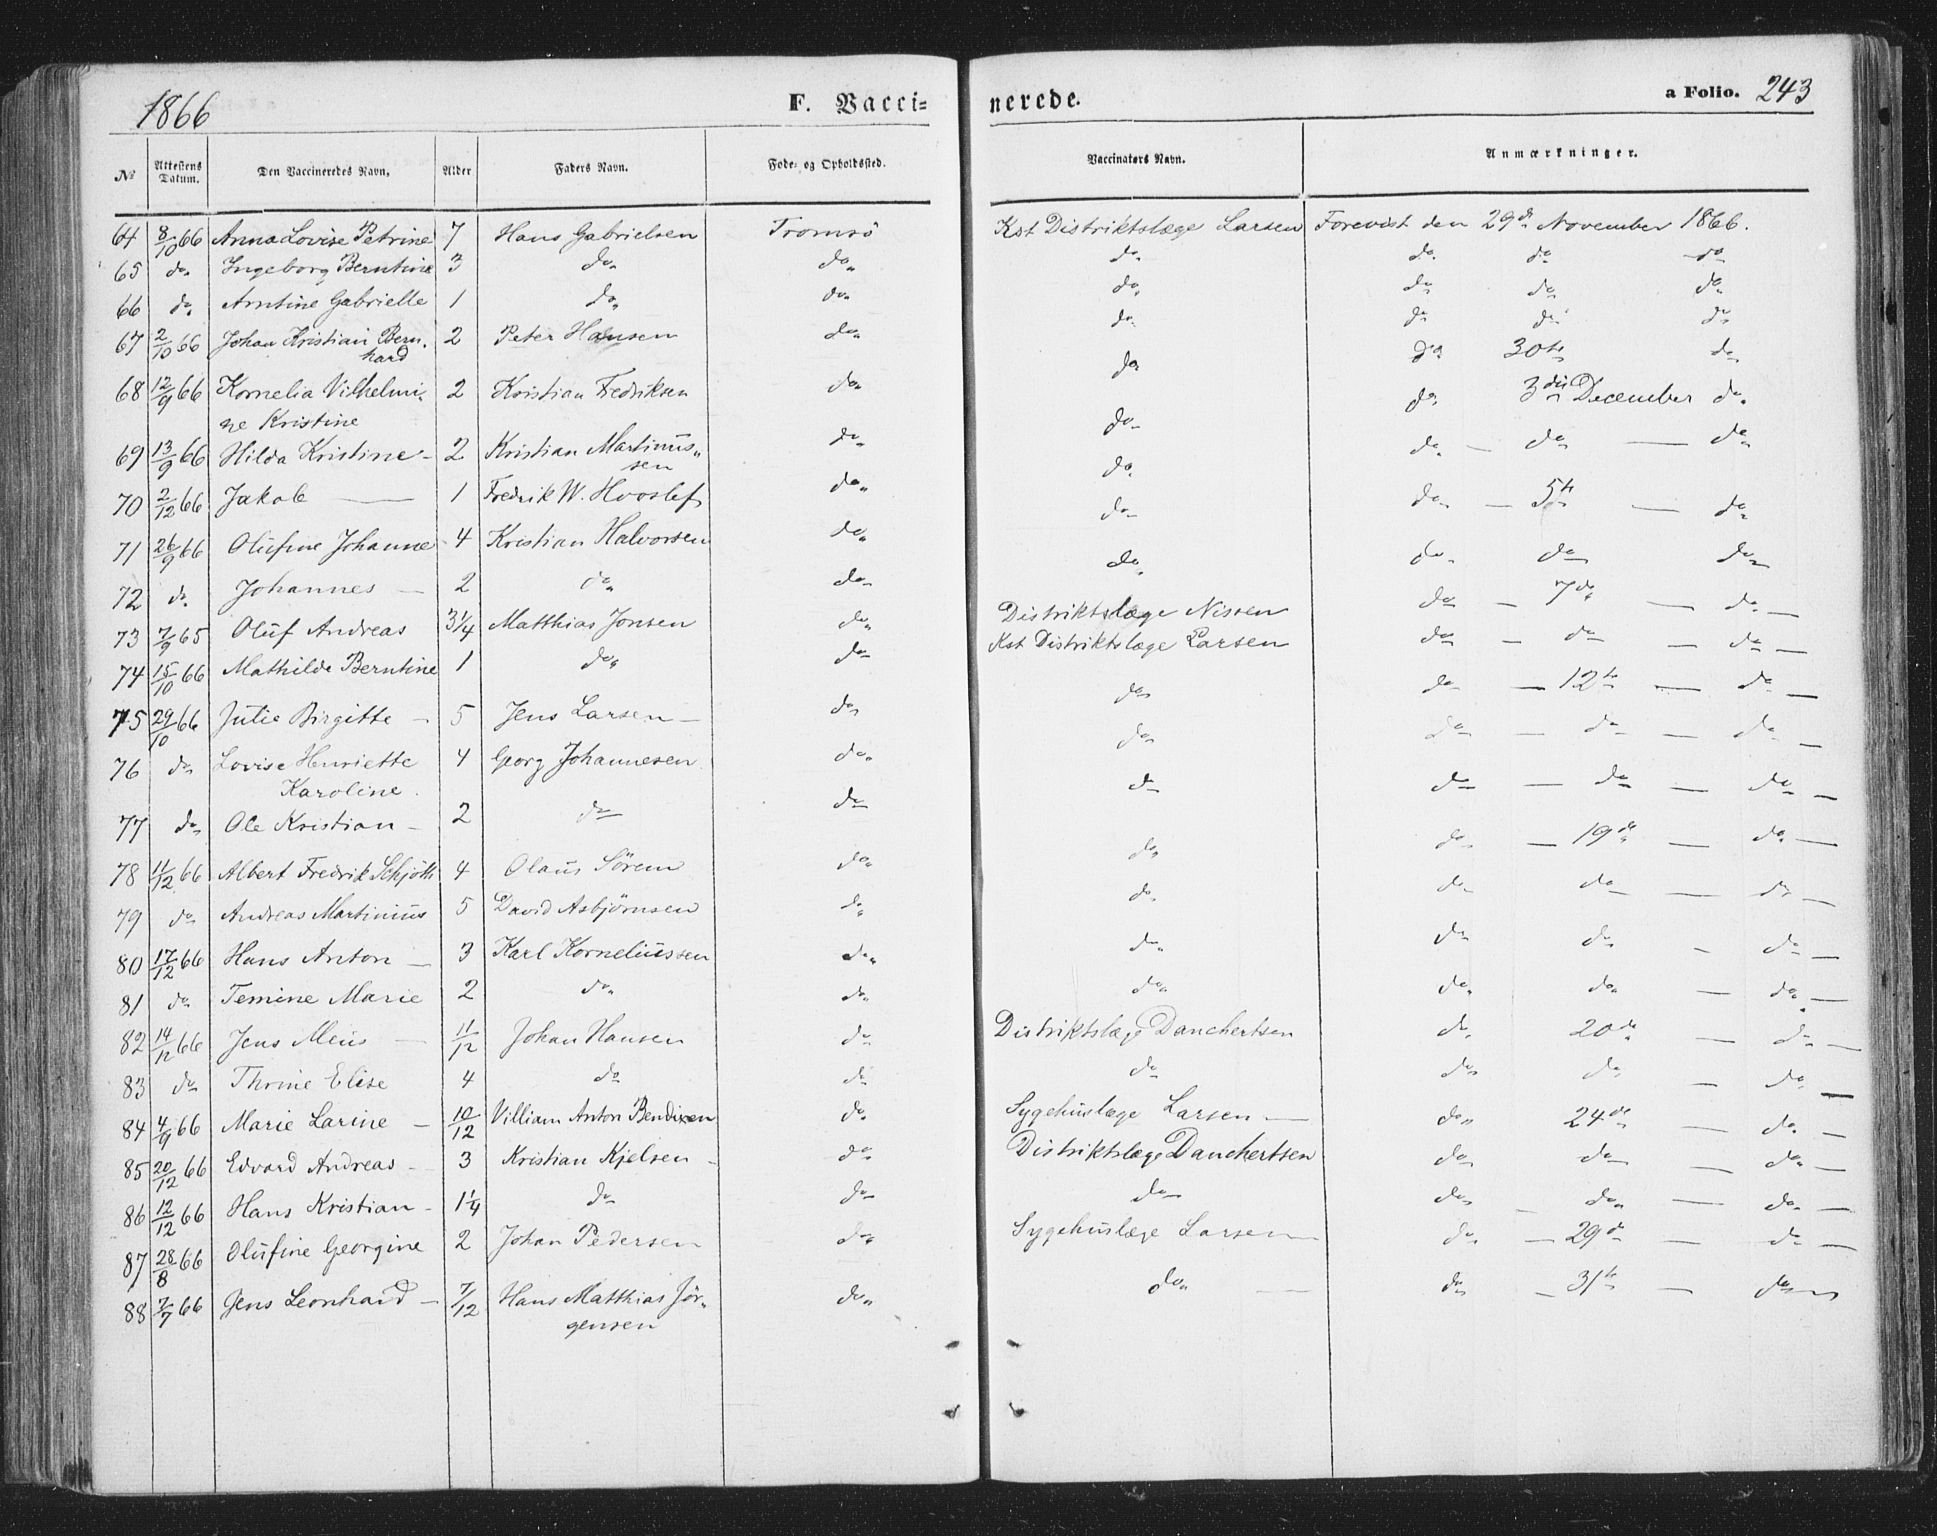 1866 F. Vacci= nerede. a Folio. 243
№ Attestens Datum. Den Vaccineredes Navn, Alder Faders Navn. Føde- og Opholdssted. Vaccinatørs Navn. Anmærkninger.
64 8/10 66 Anna Lovise Petrine 7 Hans Gabrielsen Tromsö Kst Distriktslæge Larsen Forevist den 29de November 1866.
65 do Ingeborg Berntine 3 do do do do do do
66 do Arntine Gabrielle 1 do do do do do do
67 2/10 66 Johan Kristian Bern- 2 Peter Hansen do do do do do
hard
68 12/9 66 Kornelia Vilhelmi- 2 Kristian Fedriksen do do do 30te do
ne Kristine
69 13/9 66 Hilda Kristine - 2 Kristian Martinus- do do do 3die December do
sen
70 2/12 66 Jakob — 1 Fredrik W. Hooslef do do do - do — do
71 26/9 66 Olufine Johanne 4 Kristian Halvorsen do do do - 5te — do
72 do Johannes — 2 do do do do do do
73 7/9 65 Oluf Andreas 3 1/4 Matthias Jonsen do Distriktslæge Nissen do - 7de — do —
74 15/10 66 Mathilde Berntine 1 do do Kst Distriktslæge Larsen do - do — do —
75 29/10 66 Julie Birgitte - 5 Jens Larsen — do do do — 12te — do —
76 do Lovise Henriette 4 Georg Johannesen do do do — do — do —
Karoline.
77 do Ole Kristian - 2 do do do do — do — do —
78 11/12 66 Albert Fredrik Schjöth 4 Olaus Sörem do do do — 19de — do —
79 do Andreas Martinius 5 David Asbjörnsen do do do do — do —
80 17/12 66 Hans Anton — 3 Karl Korneliussen do do do do - do —
81 do Temine Marie 2 do do do do do — do —
82 14/12 66 Jens Meius — 11/12 Johan Hansen do Distriktslæge Danchertsen do 20de — do —
83 do Thrine Elise 4 do do do do do — do —
84 4/9 66 Marie Larine — 10/12 Villiam Anton Bendixen do Sygehuslæge Larsen — do 24de — do —
85 20/12 66 Edvard Andreas - 3 Kristian Kjelsen - do Distriktslæge Danchertsen do do — do —
86 12/12 66 Hans Kristian - 1 1/4 do do do do — do — do —
87 28/8 66 Olufine Georgine 2 Johan Pedersen do Sygehuslæge Larsen do — 29de — do —
88 7/7 66 Jens Leonhard — 7/12 Hans Matthias Jör- do do — do — 31te — do
gensen